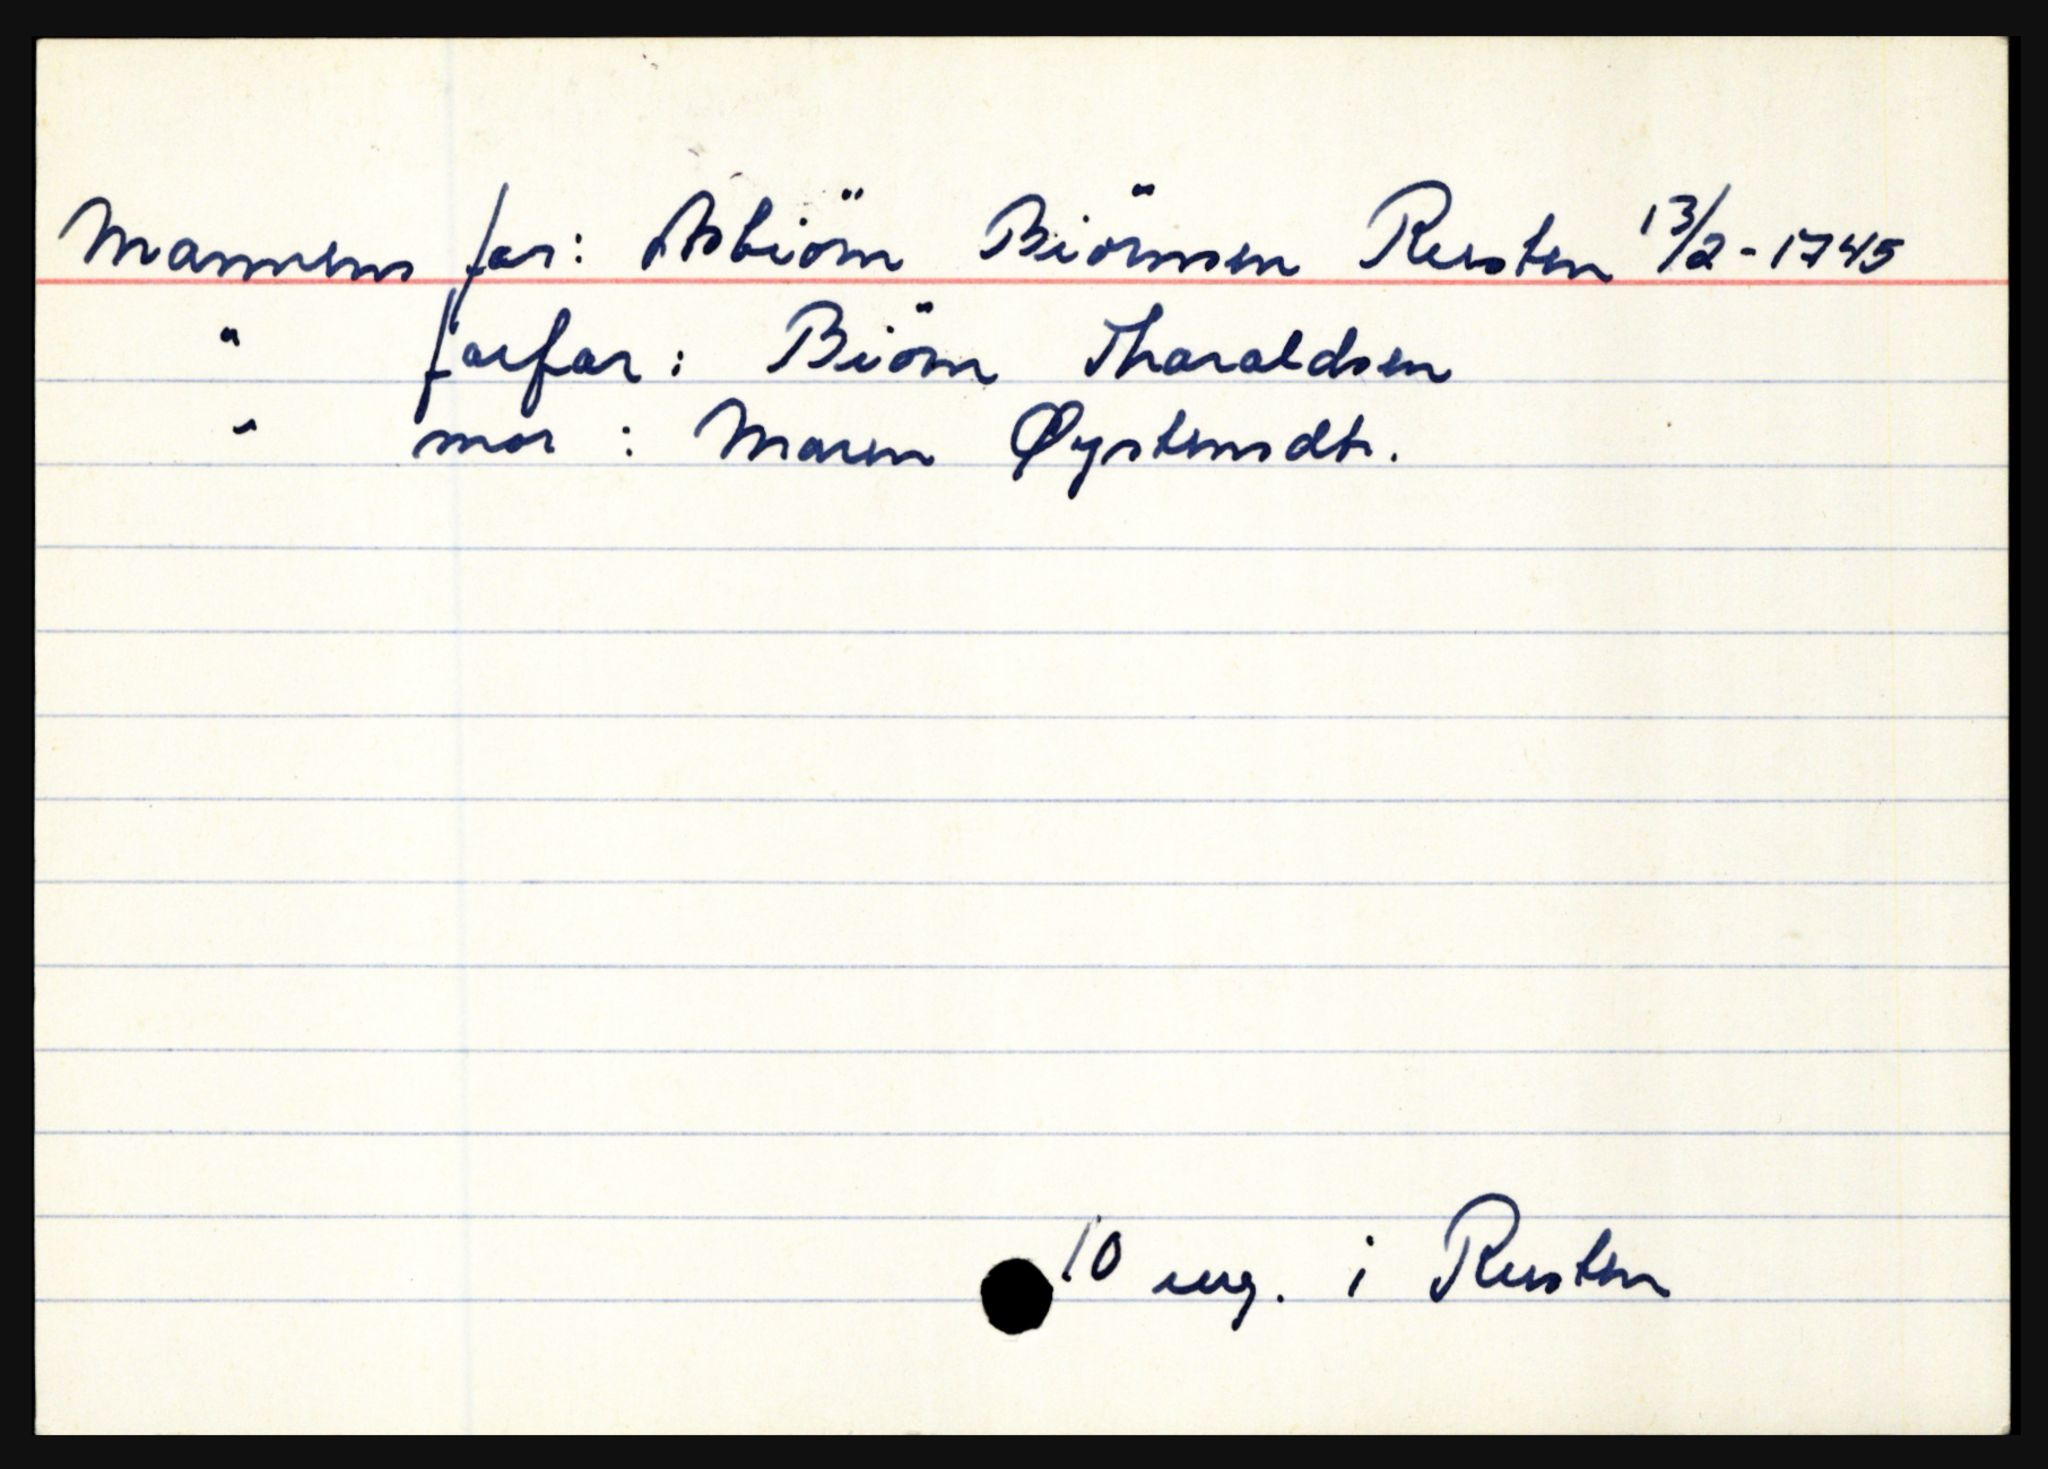 Mannens far: Asbiörn Biörnsen Rusten 13/2-1745
" farfar: Biörn Tharaldsen
" mor: Maren Øystensdtr.
10 ung. i Rusten